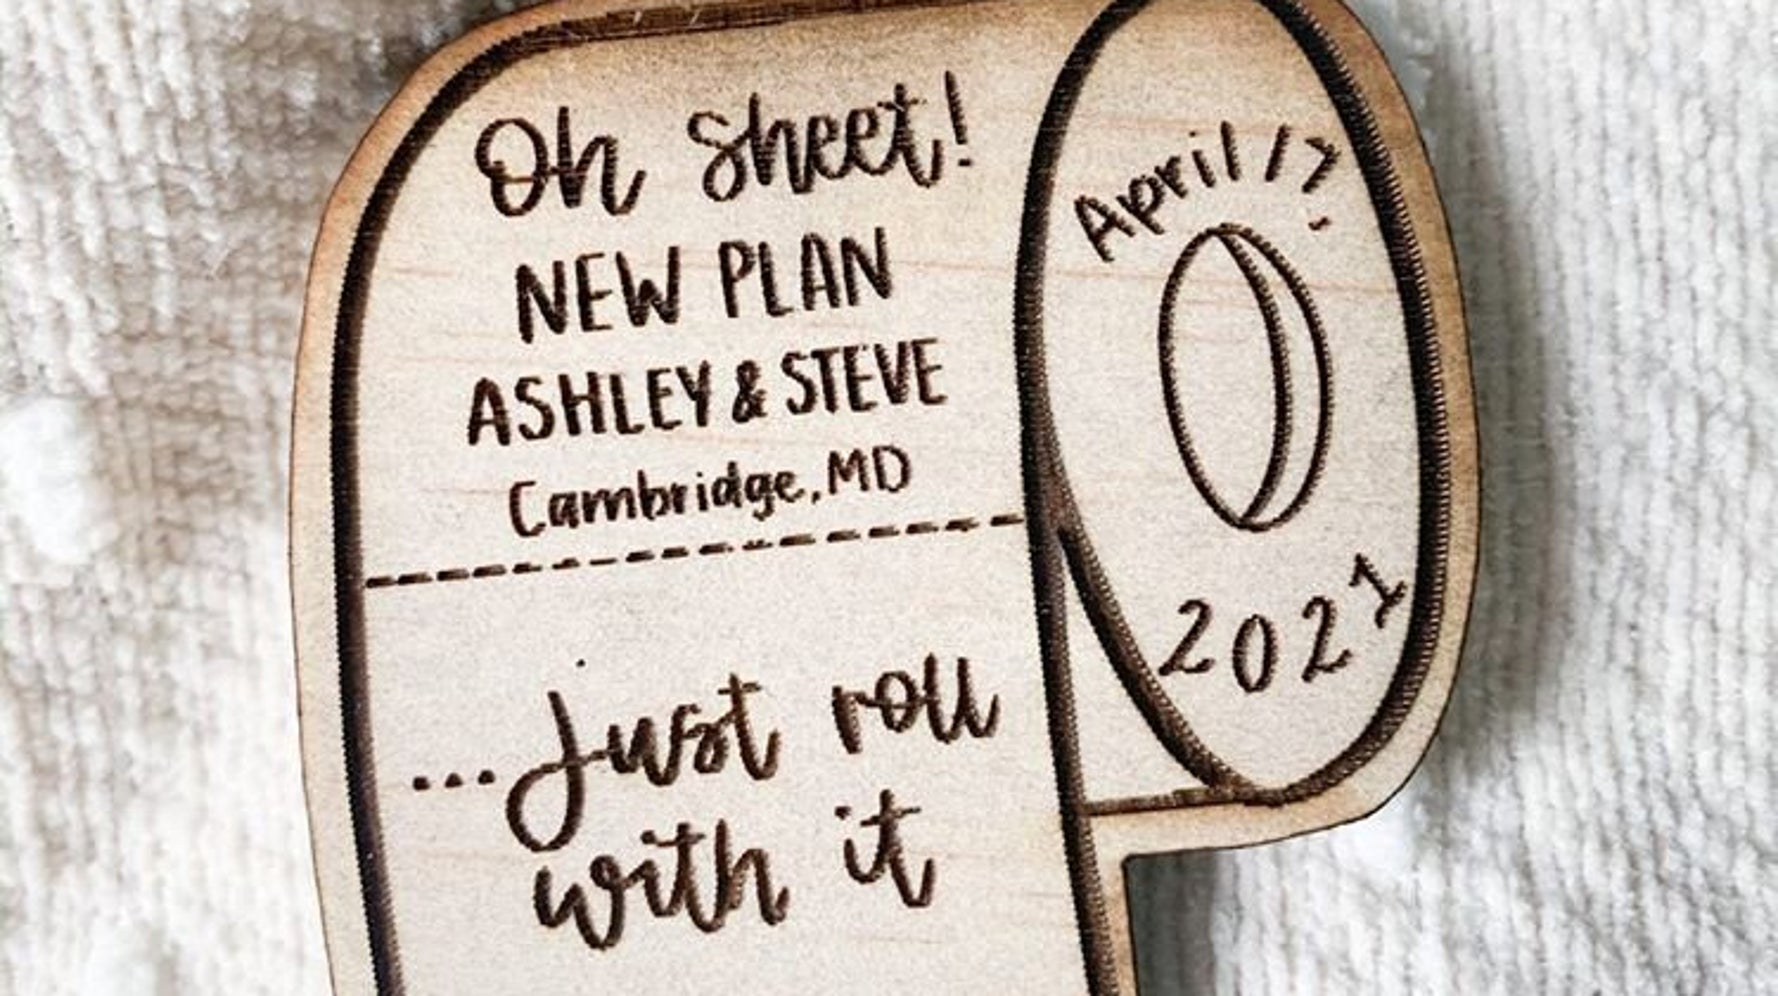 Oh sheet!
NEW PLAN
ASHLEY & STEVE
Cambridge, MD
...just roll
with it
April 17,
2021